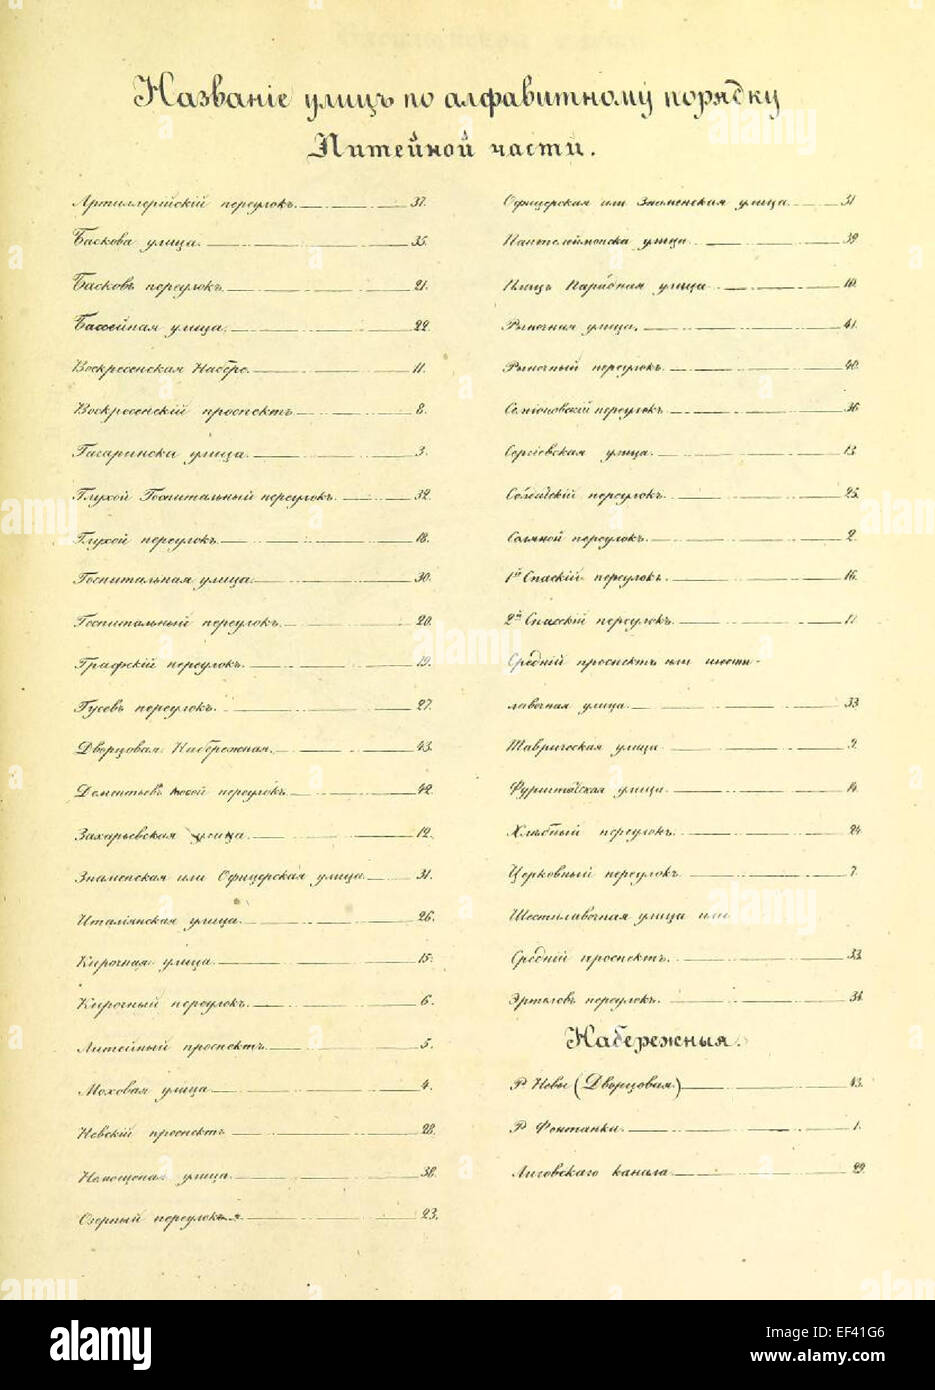 Названіе улицъ по алфавитному порядку
Литейной части.
Артиллерійскій переулокъ. 37.
Баскова улица. 35.
Басковъ переулокъ. 21.
Бассейная улица. 22.
Воскресенская Набере. 11.
Воскресенскій проспектъ 8.
Гагаринска улица. 3.
Глухой Госпитальный переулокъ. 32.
Глухой переулокъ 18.
Госпитальная улица. 30.
Госпитальный переулокъ. 20.
Графскій переулокъ. 19.
Гусевъ переулокъ. 27.
Дворцовая Набережная. 43.
Дементьевъ косой переулокъ 42.
Захарьевская улица. 12.
Знаменская или Офицерская улица. 31.
Италіянская улица. 26.
Кирочная улица 15.
Кирочный переулокъ. 6.
Литейный проспектъ. 5.
Моховая улица 4.
Невскій проспектъ 28.
Немощеная улица. 38.
Озерный переулокъ 23.
Офицерская или Знаменская улица. 31
Пантелеймонска улица. 39
Плацъ Парадная улица 10.
Рыночная улица. 41.
Рыночный переулокъ. 40.
Семіоновскій переулокъ 36
Сергіевская улица. 13.
переулокъ. 25.
Соляной переулокъ. 2.
1й Спаскій переулокъ. 16.
2й Спасскій переулокъ. 17
Средній проспектъ или шести-
лавочная улица. 33.
Таврическая улица 9.
Фурштатская улица. 14.
Хлѣбный переулокъ. 24
Церковный переулокъ. 7.
Шестилавочная улица или
Средній проспектъ. 33.
Эртелевъ переулокъ. 34.
Набережныя.
Р Невы (Дворцовая.) 43.
Р Фонтанки. 1.
Лиговскаго канала 29.
alamy
Image ID: EF41G6
www.alamy.com